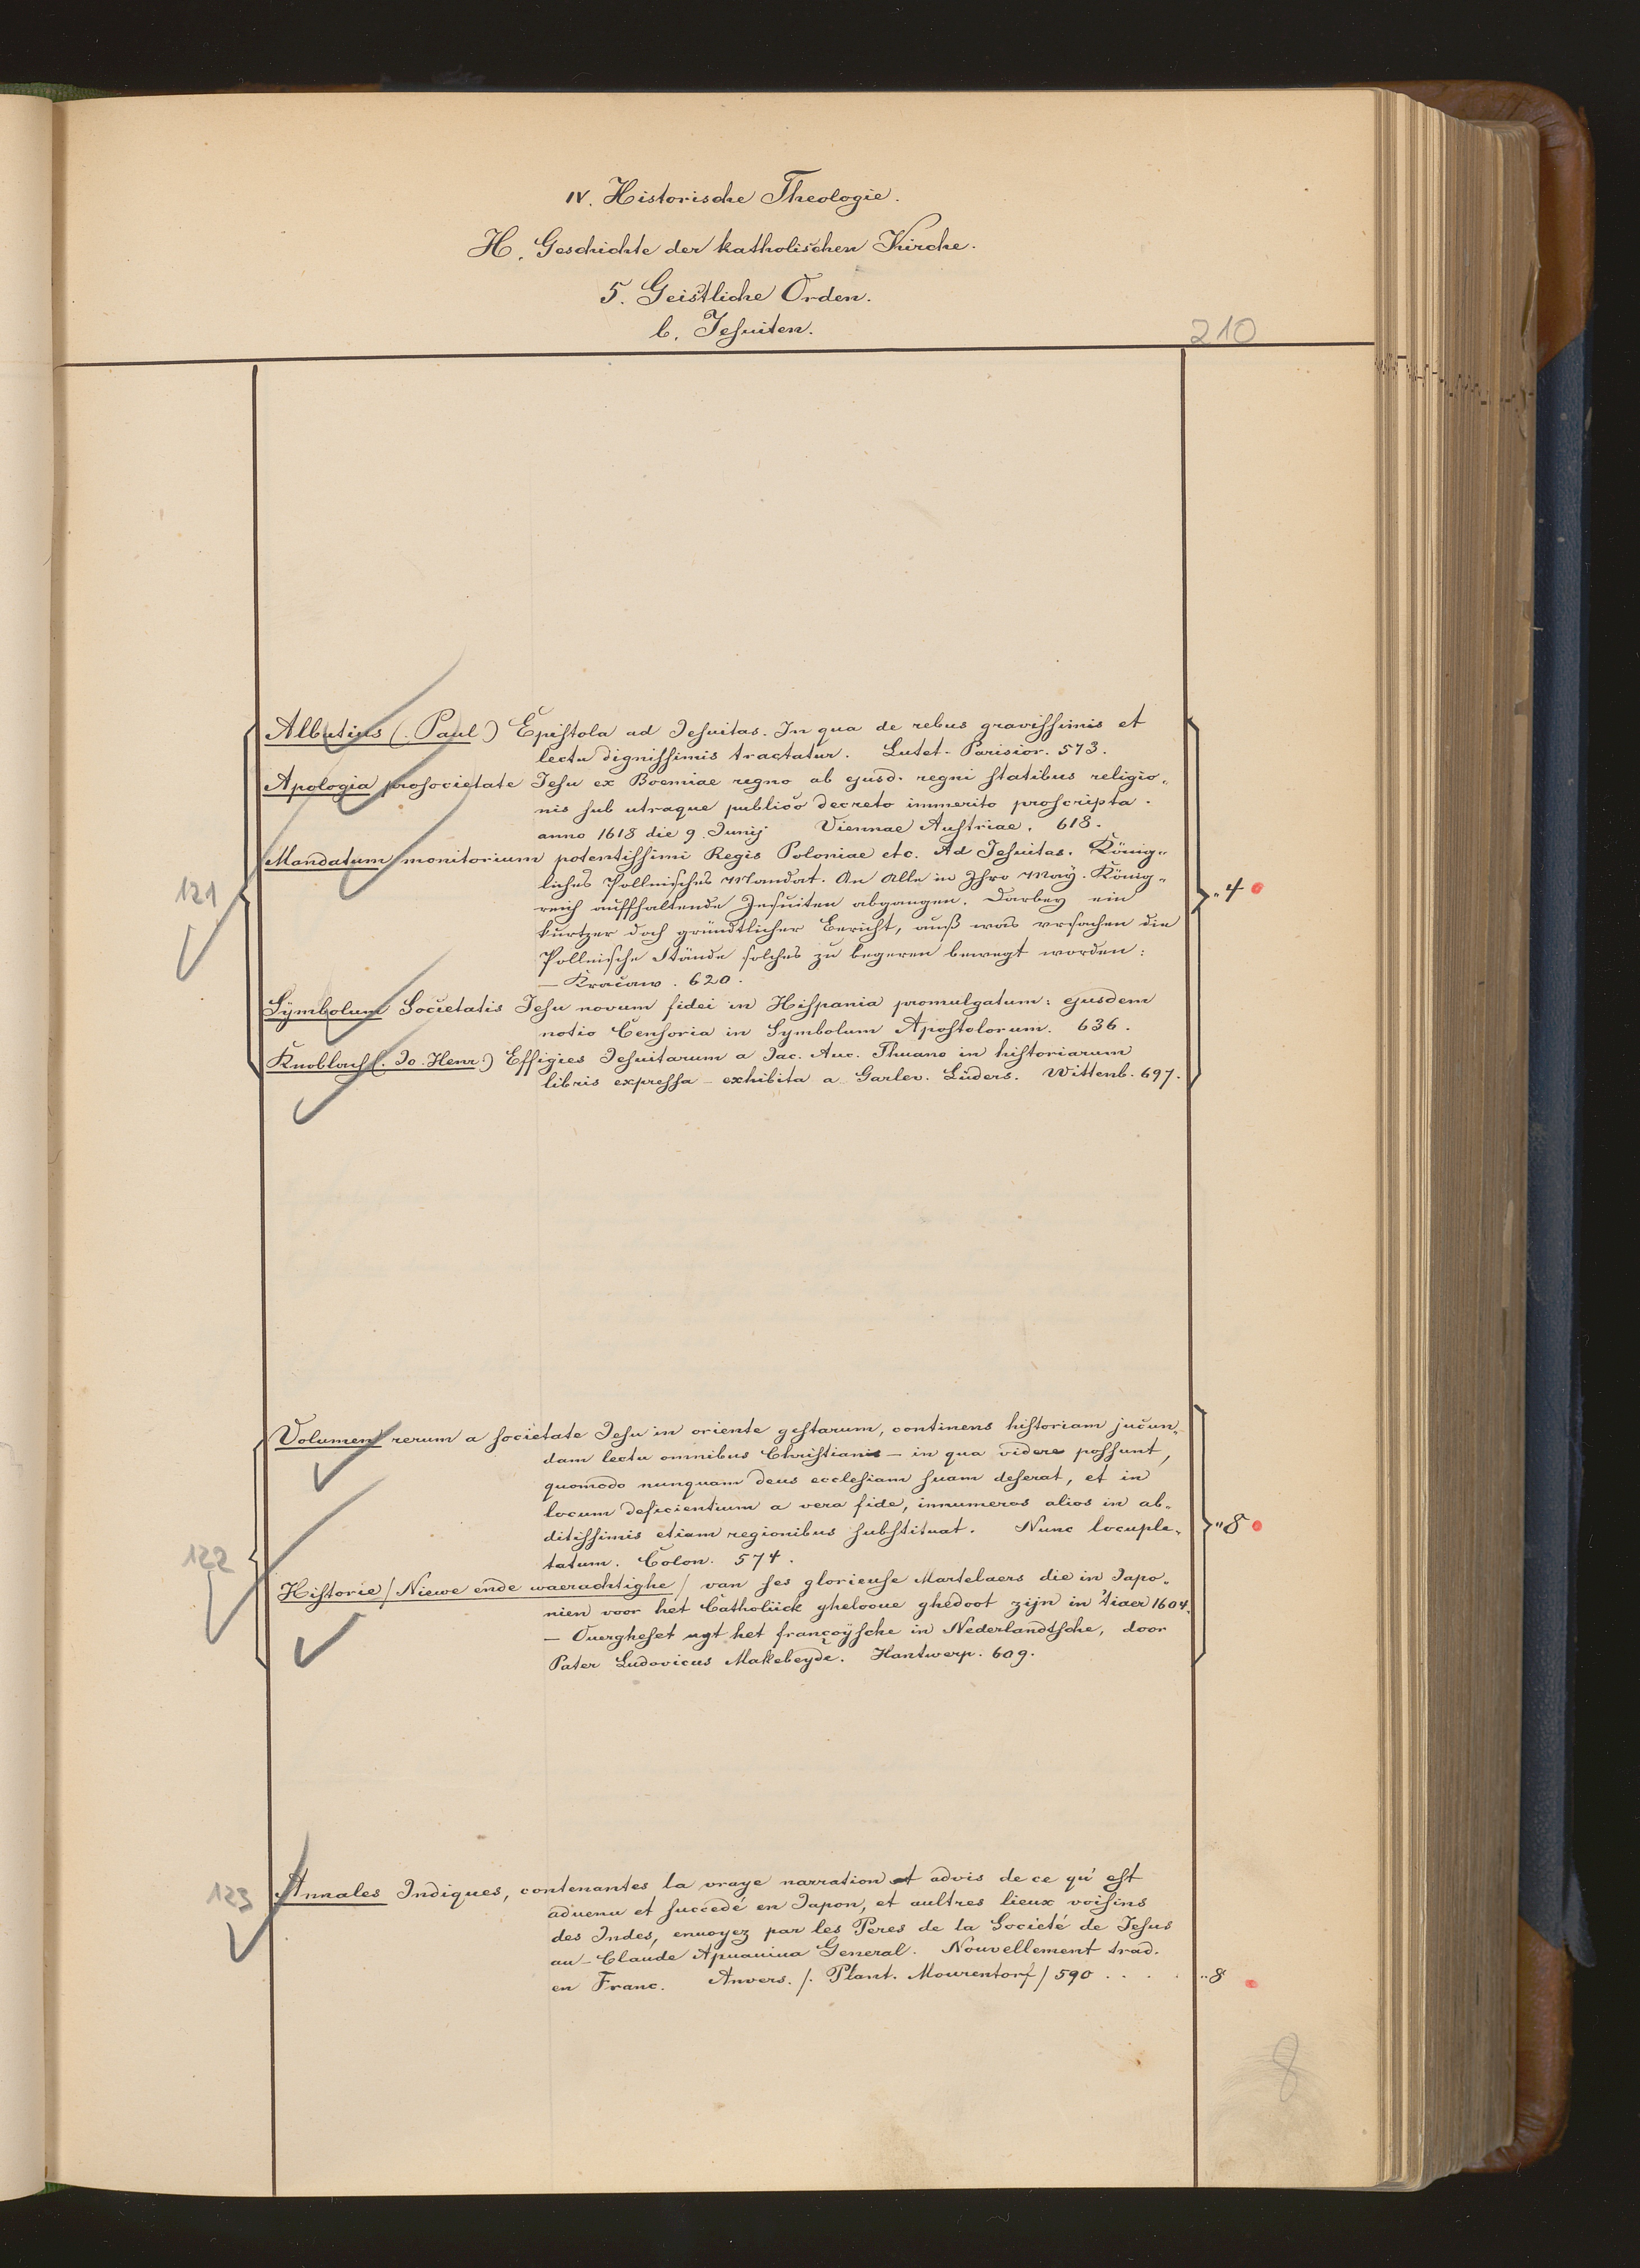 IV. Historische Theologie.
H. Geschichte der katholischen Kirche.
5. Geistliche Orden.
b. Jesuiten.
210
Albutius (. Paul.) Epistola ad Jesuitas. In qua de rebus gravissimis et
lectu dignissimis tractatur. Lutet. Parisior. 573.
Apologia pro societate Jesu ex Boemiae regno ab ejusd. regni statibus religio-
nis sub utraque publico decreto immerito proscripta.
anno 1618 die 9. Junij Viennae Austriae. 618.
Mandatum monitorium potentissimi Regis Poloniae etc. Ad Jesuitas. König-
liches Pollnisches Mandat. An Alle in Ihro May. König-
reich auffhaltende Jesuiten abgangen. Darbey ein
kurtzer doch gründtlicher Bericht, auß was vrsachen die
Pollnische Stände solches zu begeren bewegt worden:
— Kracaw. 620.
121
"4
Symbolum Societatis Jesu novum fidei in Hispania promulgatum: ejusdem
notio Censoria in Symbolum Apostolorum. 636.
Knoblach (. Jo. Henr.) Effigies Jesuitarum a Jac. Auc. Thuano in historiarum
libris expressa - exhibita a Garlev. Lüders. Wittenb. 697.
Volumen rerum a societate Jesu in oriente gestarum, continens historiam jucun-
dam lectu omnibus Christianis — in qua videre possunt,
quomodo nunquam deus ecclesiam suam deserat, et in
locum deficientium a vera fide, innumeros alios in ab-
ditissimis etiam regionibus substituat. Nunc locuple-
tatum. Colon. 574.
122
"8
Historie / Niewe ende waerachtighe / van ses glorieuse Martelaers die in Japo-
nien voor het Catholiick gheloove ghedoot zijn in 'tiaer 1604.
— Overgheset uyt het françoÿsche in Nederlandtsche, door
Pater Ludovicus Makebeyde. Hantwerp. 609.
123
Annales Indiques, contenantes la vraye narration et advis de ce qu'est
advenu et succedé en Japon, et aultres lieux voisins
des Indes, envoyez par les Peres de la Societé de Jesus
au - Claude Apuaviva General. Nouvellement trad.
en Franc. Anvers. /. Plant. Mourentorf / 590 . . . . "8
8